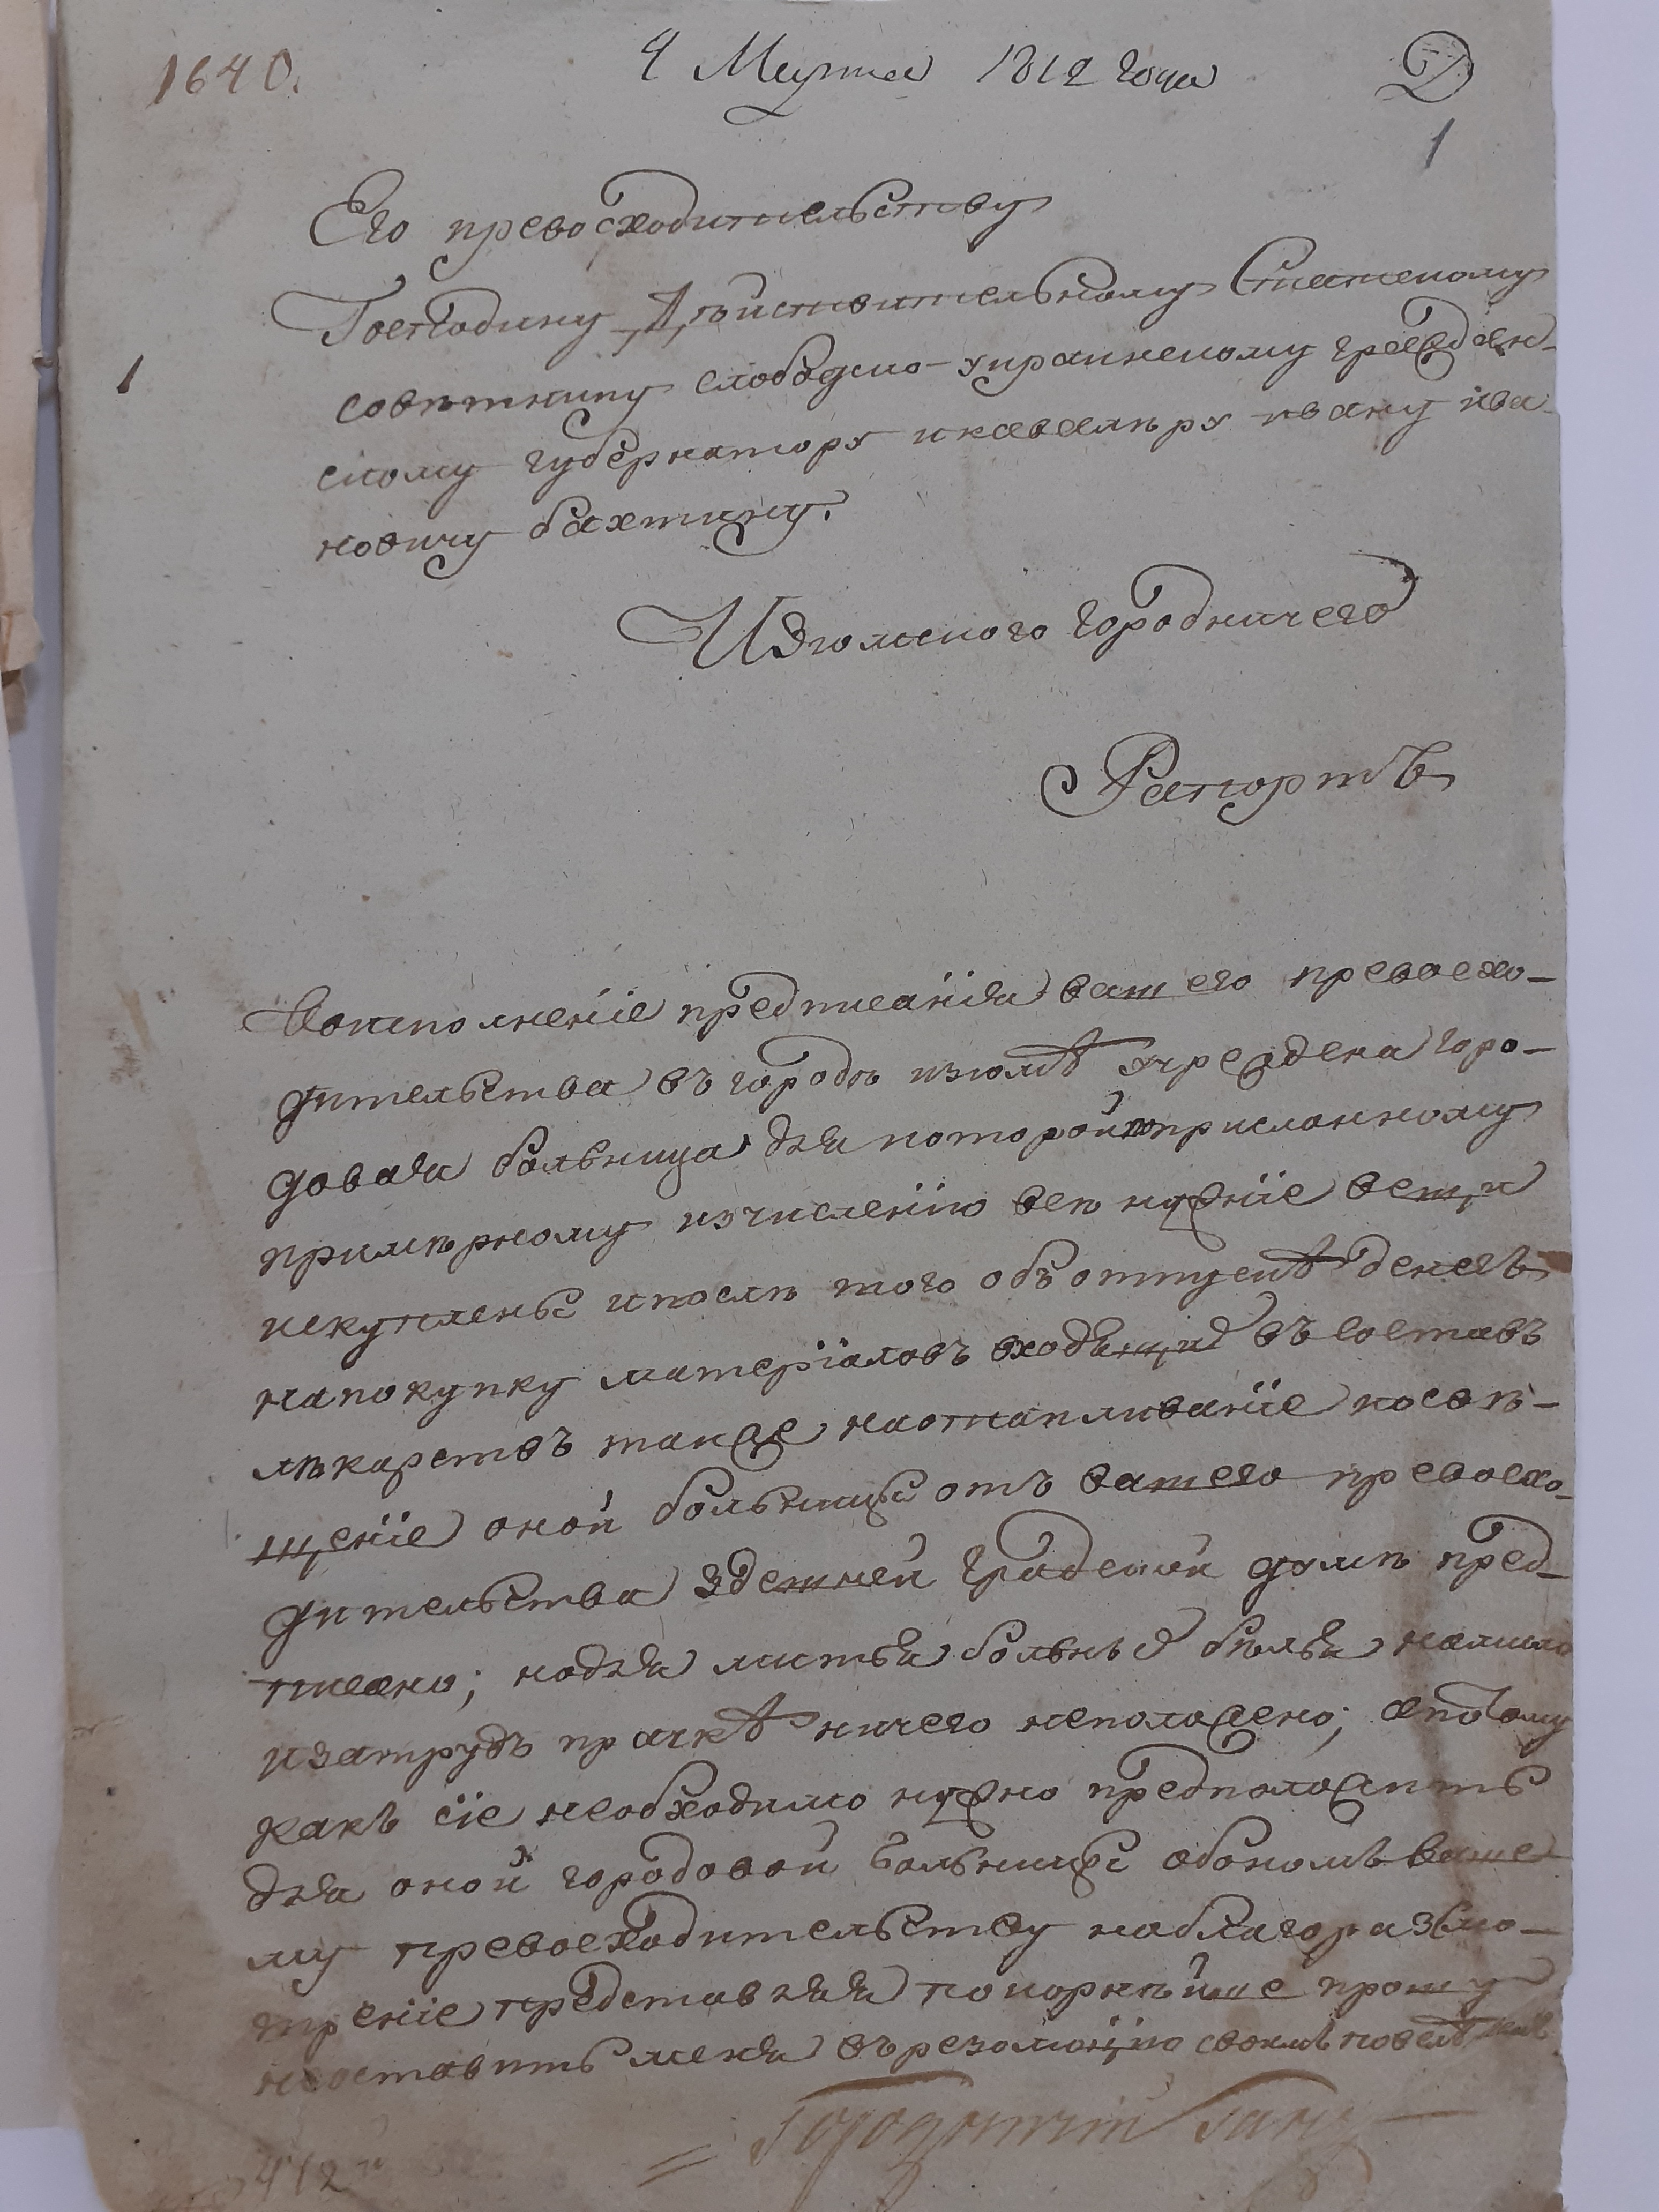 1640.
4 Марта 1812 года
1
Его превосходительству
Господину Дѣйствительному Статскому
1
совѣтнику слободско-украинскому граждан-
скому губернатору и кавалѣру ивану ива-
новичу бахтину.
Изюмского городничего
Рапортъ
Воисполненіе предписанія вашего превосхо-
дительства въ городѣ изюмѣ учреждена горо-
довая больница для которой поприсланному
примѣрному изчисленію всѣ нужніе вещи
искуплены ипослѣ того объ отпускѣ денегъ
напокупку матеріаловъ входящих въ составъ
лѣкарствъ также наотапливаніе иосвѣ-
щеніе оной больницы отъ вашего превосхо-
дительства здешней градской думѣ пред-
писано; нодля митья больных бѣлья намило
изатрудъ прачкѣ ничего неположено; апотому
какъ сіе необходимо нужно предположить
для оной городовой больницы обономъ ваше-
му превосходительству наблагоразсмо-
треніе представляя покорнѣйше прошу
неоставить меня върезолюцію своимъ повелѣніемъ
Городничій
412